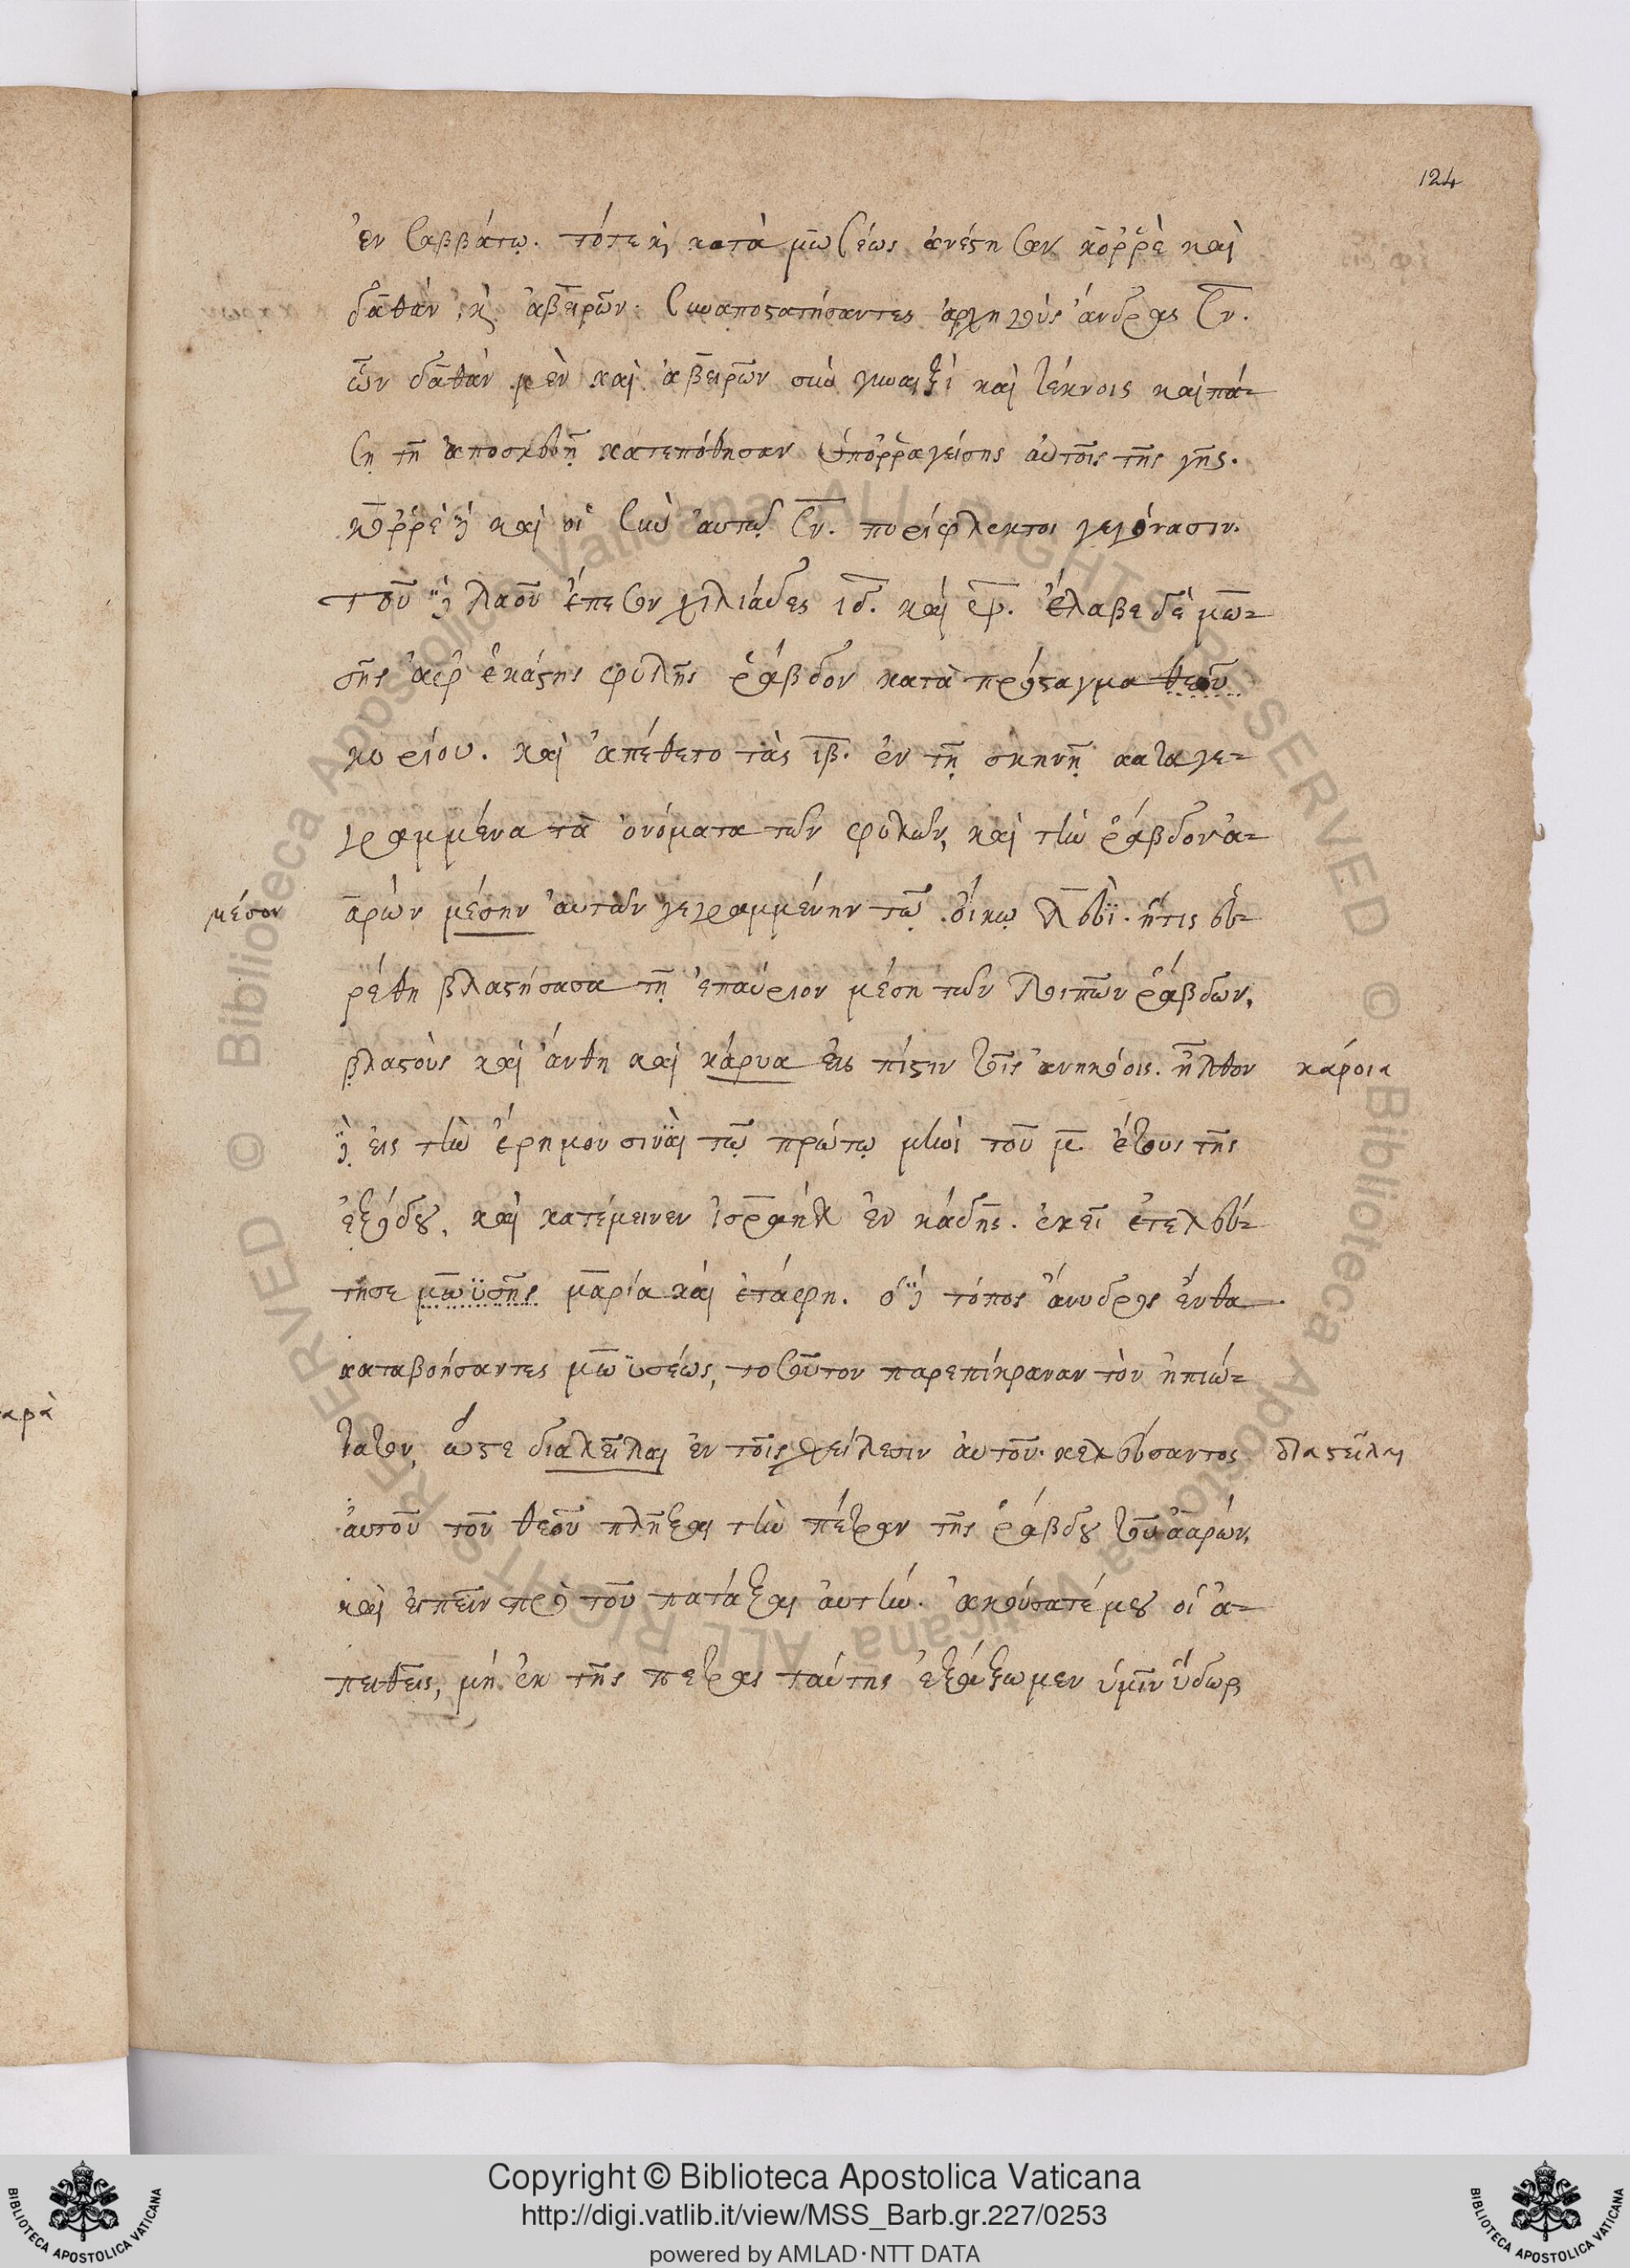 124
ἐν σαββάτῳ. τότε καὶ κατὰ μωσέως ἀνέστησαν κορρὲ καὶ
δαθὰν καὶ ἀβειρὼν. συναποστατήσαντες ἀρχηγοὺς ἄνδρας σν.
ὧν δαθὰν μὲν καὶ ἀβειρὼν σὺν γυναιξὶ καὶ τέκνοις καὶ πά-
σῃ τῇ ἀποσκευῇ κατεπόθησαν ὑπορραγείσης αὐτοῖς τῆς γῆς.
κορρὲ δὲ καὶ οἱ σὺν αὐτῷ σν. πυρίφλεκτοι γεγόνασιν.
τοῦ δὲ λαοῦ ἔπεσον χιλιάδες ιδ. καὶ ψ. ἔλαβε δὲ μω-
σῆς ἀφ' ἑκάστης φυλῆς ῥάβδον κατὰ πρόσταγμα θεοῦ
κυρίου. καὶ ἀπέθετο τὰς ιβ. ἐν τῇ σκηνῇ καταγε-
γραμμένα τὰ ὀνόματα τῶν φυλῶν, καὶ τὴν ῥάβδον ἀ-
μέσον
αρὼν μέσην αὐτῶν γεγραμμένην τῷ οἴκῳ λευΐ. ἥτις εὑ-
ρέθη βλαστήσασα τῇ ἐπαύριον μέση τῶν λοιπῶν ῥάβδων,
βλαστοὺς καὶ ἄνθη καὶ κάρυα εἰς πίστιν τοῖς ἀνηκόοις. ἦλθον
κάροια
δὲ εἰς τὴν ἔρημον σιναῒ τῷ πρώτῳ μηνὶ τοῦ μ ἔτους τῆς
ἐξόδου, καὶ κατέμεινεν ἰσραὴλ ἐν κάδης. ἐκεῖ ἐτελεύ-
τησε μωϋσῆς μαρία καὶ ἐτάφη. ὁ δὲ τόπος ἄνυδρος ἔνθα
καταβοήσαντες μωϋσέως, τοσοῦτον παρεπίκραναν τὸν ἠπιώ-
τατον, ὥστε διαλεῖλαι ἐν τοῖς χείλεσιν αὐτοῦ. κελεύσαντος
διαστεῖλαι
αὐτοῦ τοῦ θεοῦ πλῆξαι τὴν πέτραν τῆς ῥάβδου τοῦ ἀαρών,
καὶ εἰπεῖν πρὸ τοῦ πατάξαι αὐτήν. ἀκούσατέ μου οἱ ἀ-
πειθεῖς, μὴ ἐκ τῆς πέτρας ταύτης ἐξάξωμεν ὑμῖν ὕδωρ
αρὰ
Copyright © Biblioteca Apostolica Vaticana
http://digi.vatlib.it/view/MSS_Barb.gr.227/0253
powered by AMLAD·NTT DATA
BIBLIOTECA APOSTOLICA VATICANA
BIBLIOTECA APOSTOLICA VATICANA
© Biblioteca Apostolica Vaticana ALL RIGHTS RESERVED
© Biblioteca Apostolica Vaticana ALL RIGHTS RESERVED